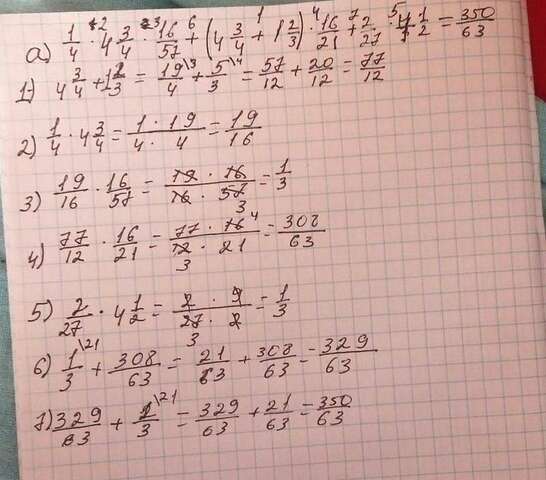 а) 1/4 · 4 3/4 · 16/57 + (4 3/4 + 1 2/3) · 16/21 + 2/27 · 4 1/2 = 350/63
1) 4 3/4 + 1 2/3 = 19\3/4 + 5\4/3 = 57/12 + 20/12 = 77/12
2) 1/4 · 4 3/4 = 1 · 19/4 · 4 = 19/16
3) 19/16 · 16/57 = 19 · 16/16 · 57 3 = 1/3
4) 77/12 · 16/21 = 77 · 16 4/12 · 21 3 = 308/63
5) 2/27 · 4 1/2 = 2 · 9/27 · 2 3 = 1/3
6) 1\21/3 + 308/63 = 21/63 + 308/63 = 329/63
7) 329/63 + 1\21/3 = 329/63 + 21/63 = 350/63